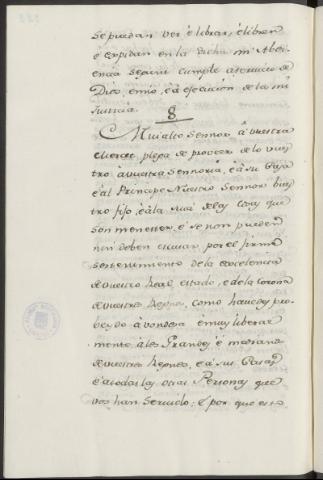 se puedan ver é librar, é libren
é expidan en la dicha mi Abdi-
encia segunt cumple á servicio de
Dios, é mio, é á esecucion de la mi
Justicia.
8
Mui alto Sennor á vuestra
alteza plega de proveer de lo vues
tro á vuestra Sennoría, é á su Casa
é al Principe Nuestro Sennor vues
tro fijo, é á la suia de las cosas que
son menester, é se non pueden
nin deben escusar, por el firme
sostenimiento de la excelencia
de vuestro Real estado, é de la Corona
de vuestros Regnos, como havedes pro-
veydo á vondosa é mui liberal
mente á los Grandes é medianos
de vuestros Regnos, é á sus Casas,
é á todas las otras Personas que
vos han servido: E por que esto